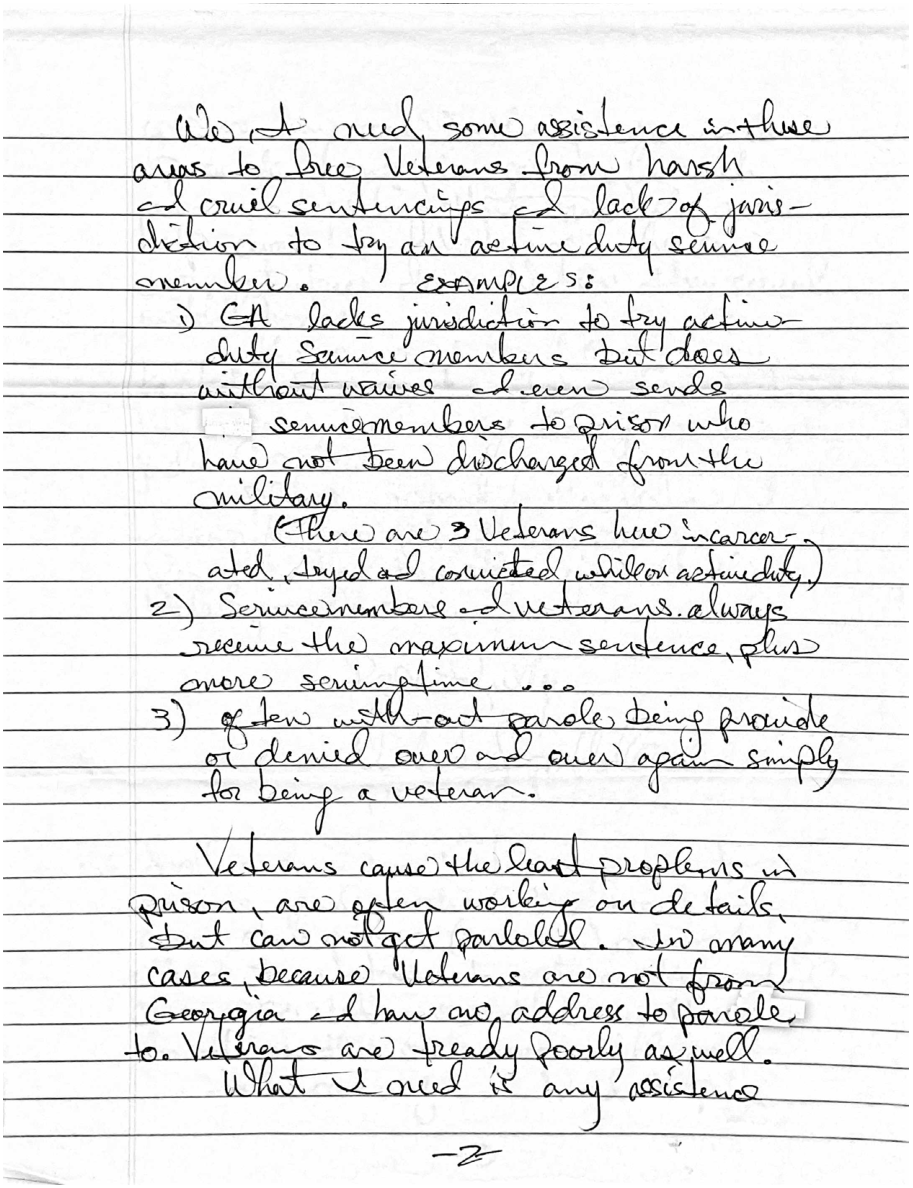 We, I need some assistence in these
areas to free Veterans from harsh
and cruel sentencings and lack of juris-
diction to try an active duty service
member. EXAMPLES:
1) GA lacks jurisdiction to try active-
duty Service members but does
without waives and even sends
servicemembers to prison who
have not been discharged from the
military.
(There are 3 Veterans here incarcer-
ated, tryed and convicted while on active duty.)
2) Servicemembers and veterans always
receive the maximum sentence, plus
more serving time ...
3) often with-out parole being provide
or denied over and over again simply
for being a veteran.
Veterans cause the least problems in
prison, are often working on details,
but can not get paroled. In many
cases, because Veterans are not from
Georgia and have no address to parole
to. Veterans are tready poorly as well.
What I need is any assistence
-2-